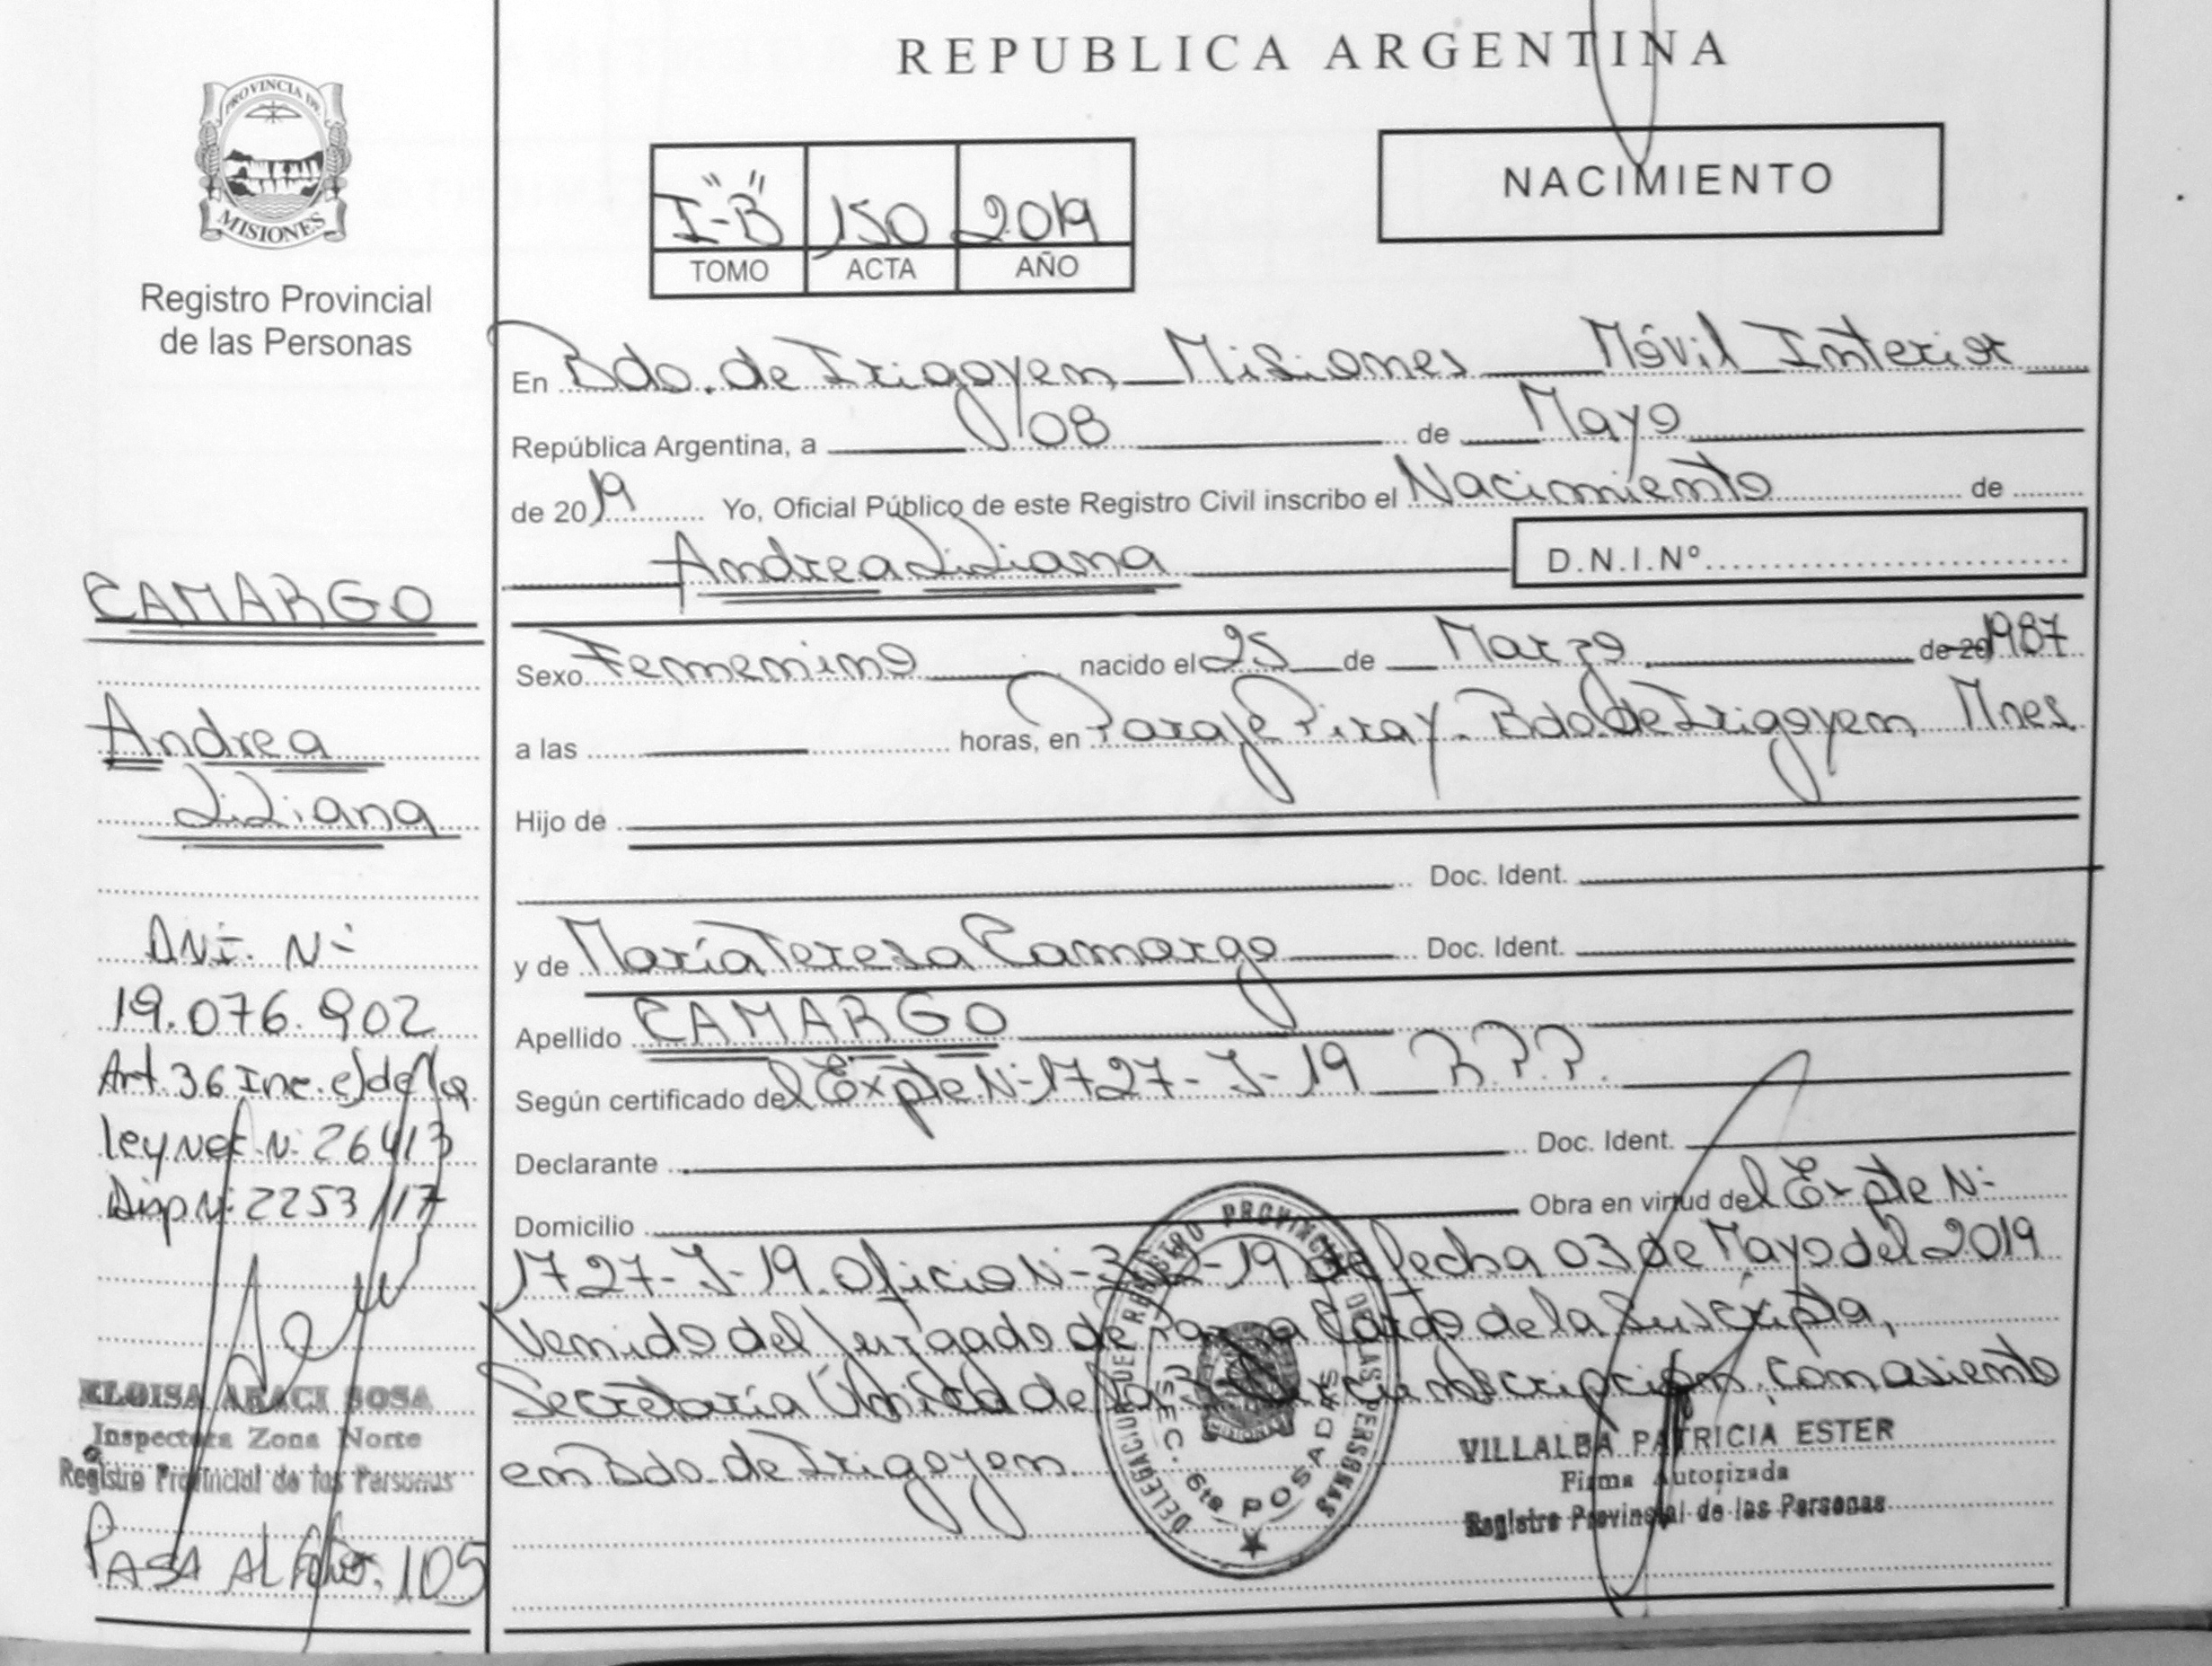 REPUBLICA ARGENTINA
PROVINCIA DE
MISIONES
Registro Provincial
de las Personas
I-"B" 150 2019
TOMO ACTA AÑO
NACIMIENTO
En Bdo. de Irigoyen Misiones Móvil Interior
República Argentina, a 08 de Mayo
de 2019 Yo, Oficial Público de este Registro Civil inscribo el Nacimiento de
Andrea Liliana D.N.I.Nº
Sexo Femenino nacido el 25 de Marzo de 20 1987
a las horas, en Paraje Piray. Bdo. de Irigoyen Mnes
Hijo de
Doc. Ident.
y de María Teresa Camargo Doc. Ident.
Apellido CAMARGO
Según certificado del Expte N- 1727-J-19 R.P.P.
Declarante Doc. Ident.
Domicilio Obra en virtud del Expte N-
1727-J-19. Oficio N- -19 de fecha 03 de Mayo del 2019
Venido del Juzgado de Paz a Cargo de la Suscripta,
Secretaría Única de la Circunscripción, con asiento
en Bdo. de Irigoyen.
CAMARGO
Andrea
Liliana
DNI. N-
19.076.902
Art. 36 Inc. c) de la
ley Nac. N- 26413
Disp N- 2253/17
ELOISA ARACI SOSA
Inspectora Zona Norte
Registro Provincial de las Personas
PASA AL Folio. 105
DELEGACION DEL REGISTRO PROVINCIAL DE LAS PERSONAS
SEC. 6ta POSADAS
VILLALBA PATRICIA ESTER
Firma Autorizada
Registro Provincial de las Personas